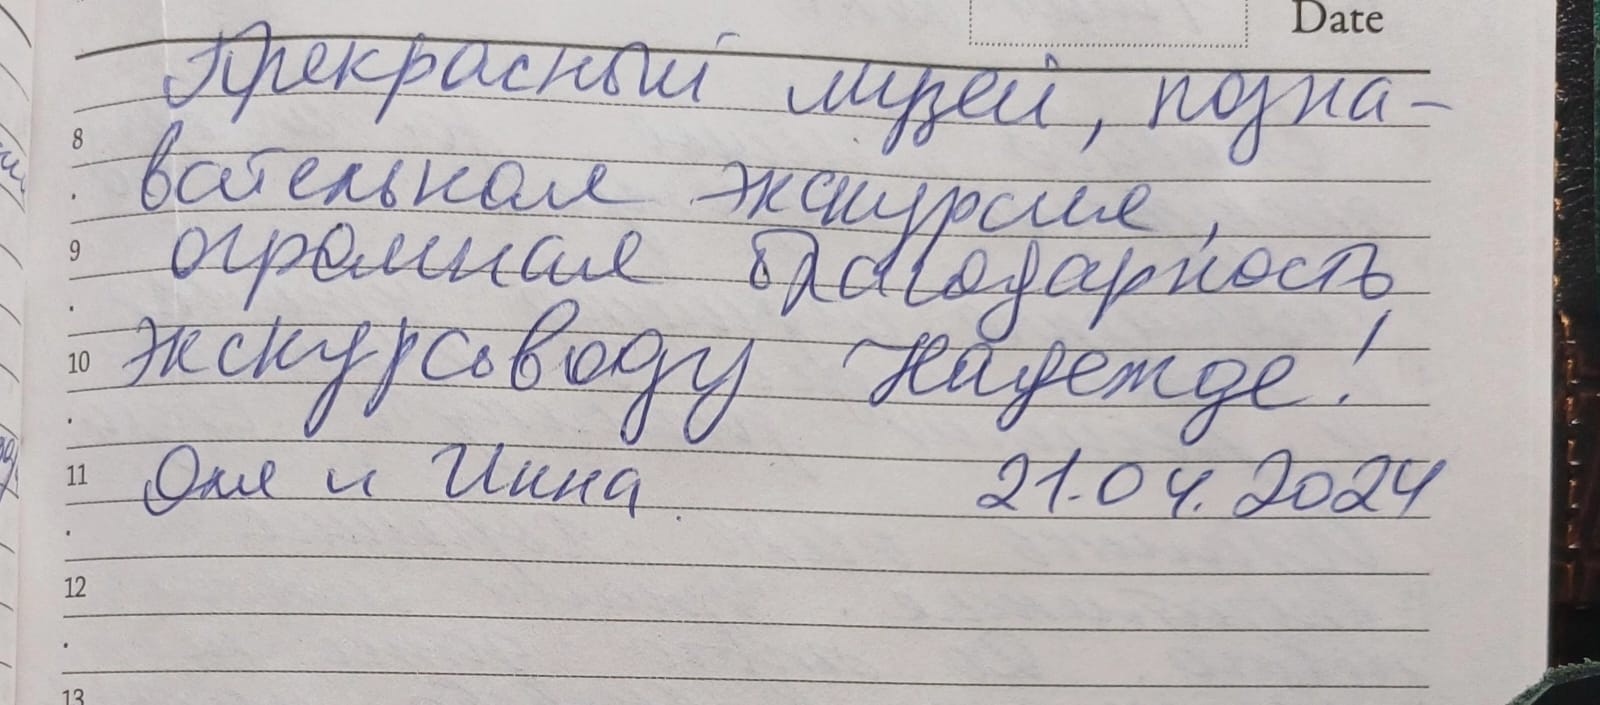 Date
Прекрасный музей, позна-
8
вательная экскурсия,
9
огромная благодарность
10
экскурсоводу Надежде!
11
Оля и Инна 21.04.2024
12
13